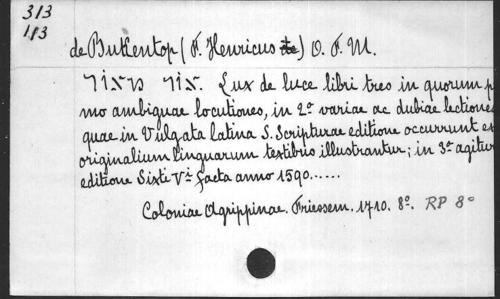 313
113
de Bukentop (F. Henricus de) O. F. M.
אור מאור. Lux de luce libri tres in quorum p
mo ambiguae locutiones, in 2º variae ac dubiae lectiones
quae in Vulgata latina S. Scripturae editione occurrunt ex
originalium linguarum textibus illustrantur; in 3º agitur
editione Sixti Vi facta anno 1590......
Coloniae Agrippinae. Friessem. 1710. 8º. RP 8º